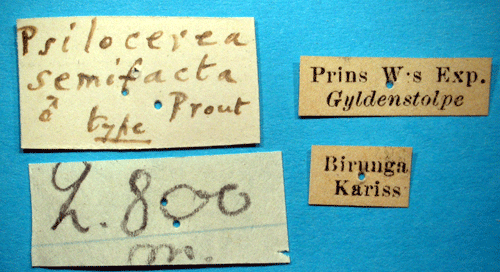 Psilocerea
semifacta
♂ Prout
type
Prins W:s Exp.
Gyldenstolpe
L. 800
m.
Birunga
Kariss